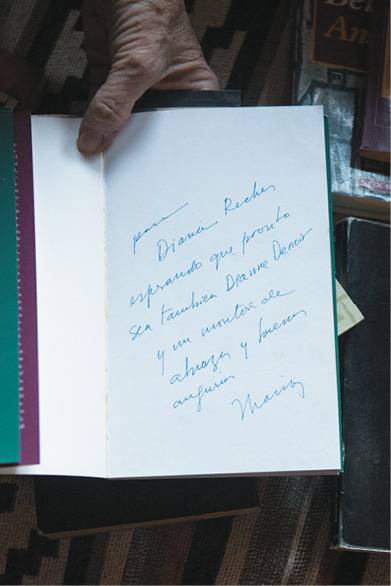 para
Diana Reches
esperando que pronto
sea también Dianne Denoir
y un montón de
abrazos y buenos
augurios
Be
An